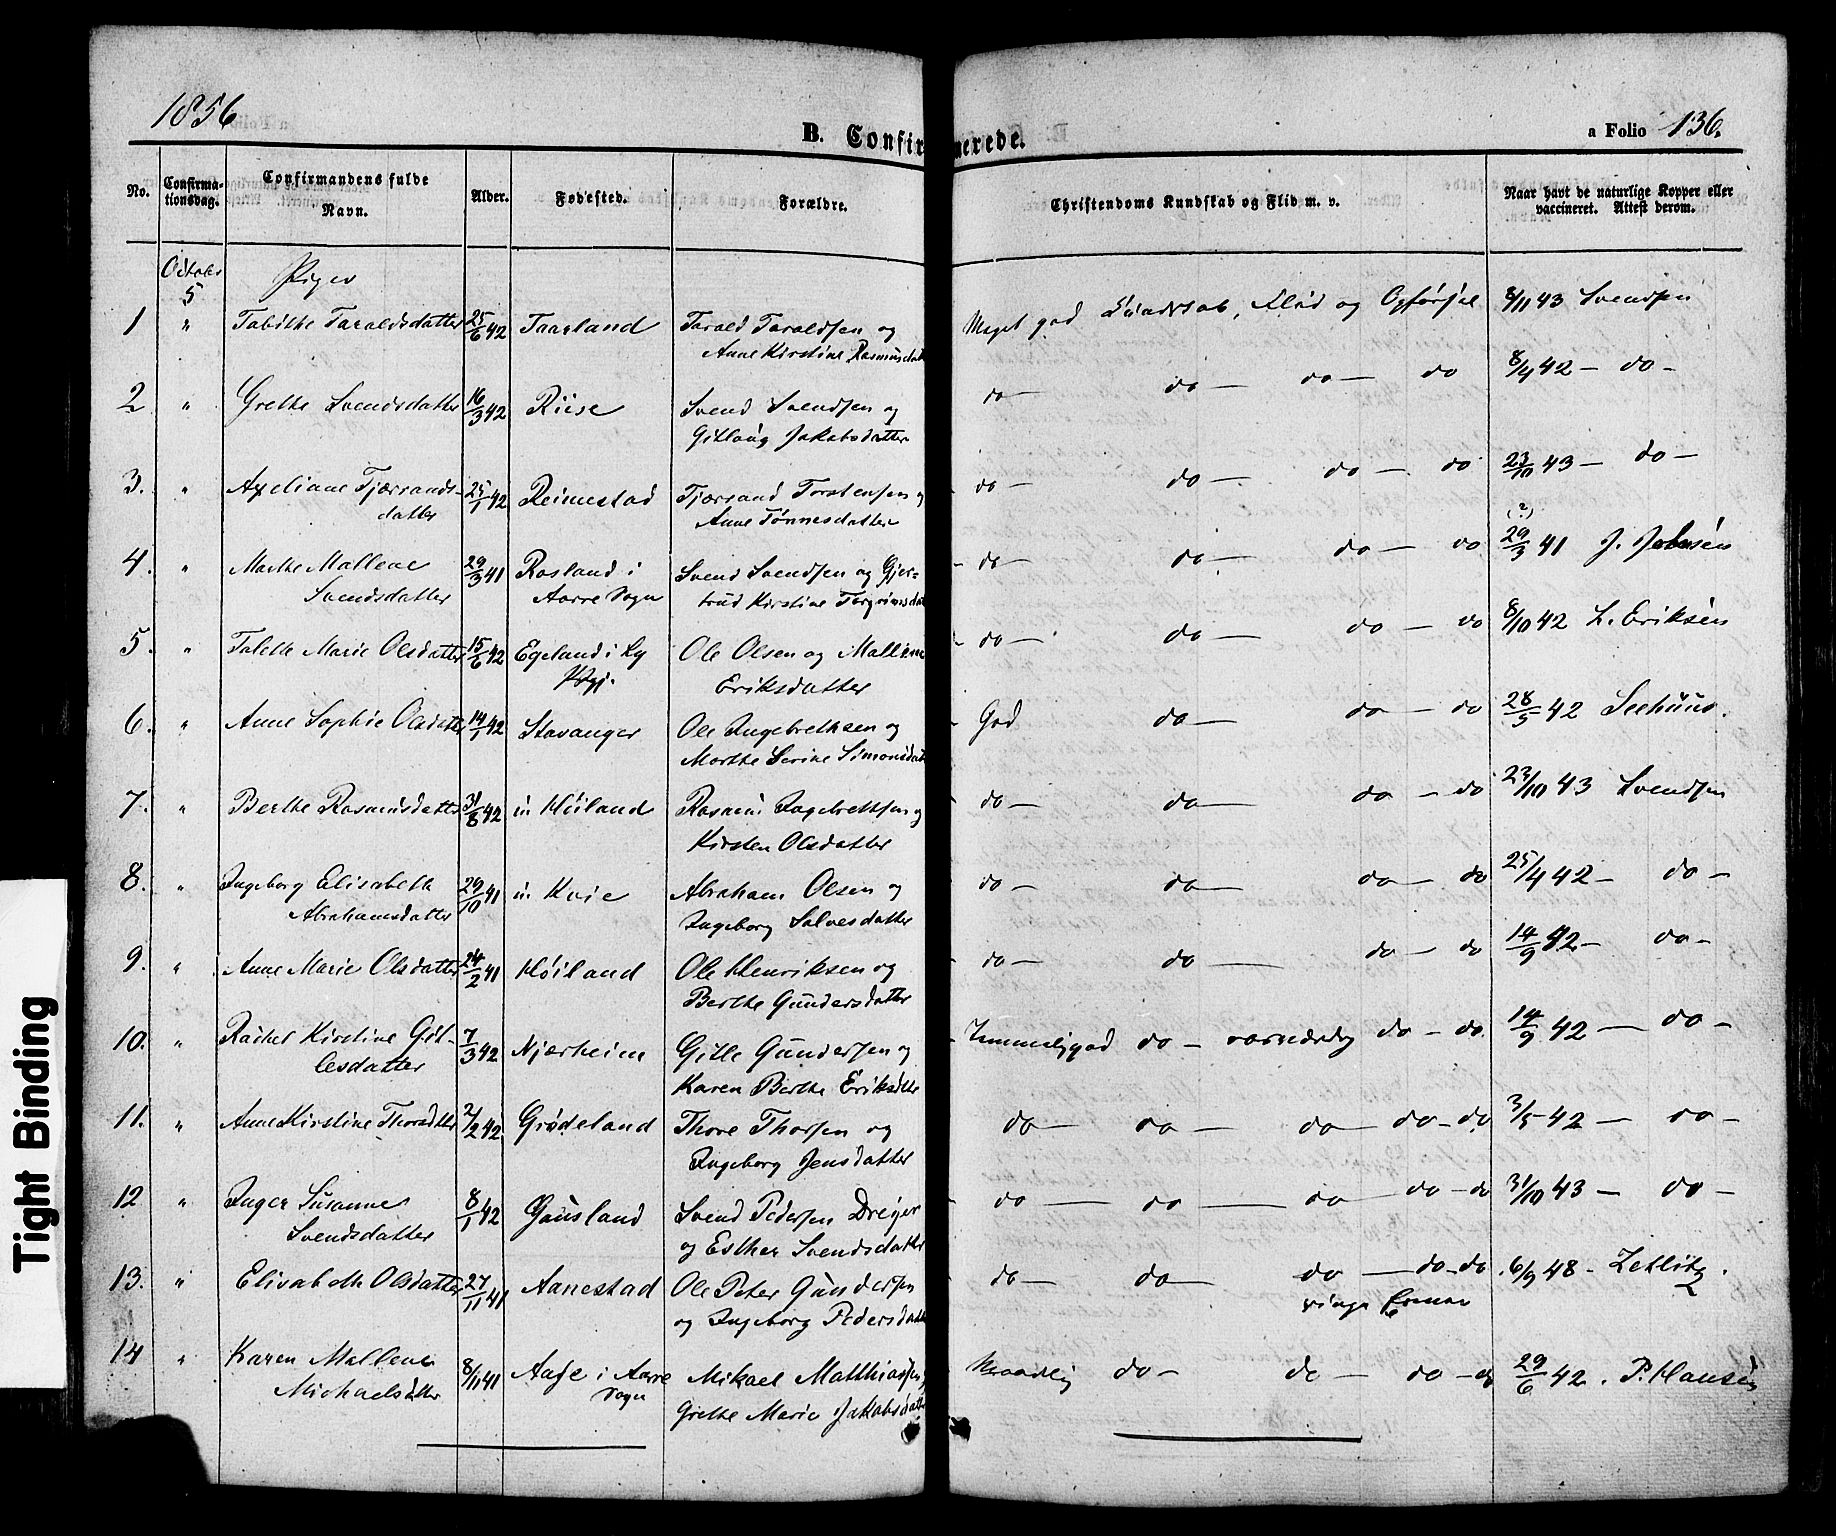 1856
B. Confirmerede.
a Folio 136.
No.
Confirma-
tionsdag.
Confirmandens fulde
Navn.
Alder.
Fødested.
Forældre.
Christendoms Kundskab og Flid m. v.
Naar havt de naturlige Kopper eller
vaccineret. Attest derom.
October
5
Piger
1 " Tabithe Taraldsdatter 25/6 42 Taarland Tarald Taraldsen og Meget god Kundskab, Flid og Opførsel 8/11 43 Svendsen
Anne Kirstine Rasmusdatt
2 " Grethe Svendsdatter 16/3 42 Riise Svend Svendsen og do — do — do — do 8/9 42 — do —
Gitlaug Jakobsdatter
3. " Axeliane Tjærrands- 25/1 42 Reimestad Tjærrand Torstensen og do — do — do — do 23/10 43 — do —
datter Anne Tønnesdatter
(?)
4. " Marthe Mallene 29/3 41 Rosland i Svend Svendsen og Gjer- do — do — do — do 29/3 41 J. Jakosen
Svendsdatter Aarre Sogn trud Kirstine Torgrimsdat
5. " Talette Marie Olsdatter 15/6 42 Egeland i Ly Ole Olsen og Malliene do — do — do — do 8/10 42 L. Eriksen
Prgj. Eriksdatter
6. " Anne Sophie Olsdatter 14/1 42 Stavanger Ole Ingebrethsen og God do — do — do 28/5 42 Seehuus.
Marthe Serine Simonsdat
7. " Berthe Rasmusdatter 31/8 42 u. Høiland Rasmus Ingebrethsen og do — do — do — do 23/10 43 Svendsen
Kirsten Olsdatter
8. " Ingeborg Elisabeth 29/10 41 u. Kvie Abraham Olsen og do — do — do — do 25/4 42 — do —
Abrahamsdatter Ingeborg Salvesdatter
9. " Anne Marie Olsdatter 24/2 41 Høiland Ole Henriksen og do — do — do — do 14/9 42 — do —
Berthe Gundersdatter
10. " Rachel Kirstine Git- 7/3 42 Njærheim Gitle Gundersen og Temmelig god do — do — do. 14/9 42 — do —
lesdatter Karen Berthe Eriksdtte
11. " Anne Kirstine Thoresdtter 2/2 42 Grødeland Thore Thorsen og do — do — do — do — do 3/5 42 — do —
Ingeborg Jensdatter
12 " Inger Susanne 8/1 42 Gausland Svend Pedersen Dreyer do — do — do — do — do 31/10 43 — do —
Svendsdatter og Esther Svendsdatter
13. " Elisabeth Olsdatter 27/11 41 Aanestad Ole Peter Gundersen do — do — do — do — do. 6/9 48 - Zetlitz.
og Ingeborg Pedersdatt ringe Evner
14 " Karen Mallene 8/11 41 Aase i Aarre Mikael Matthiassen og Maadelig do — do — do — do 29/6 42. P. Hansen
Michaelsdtter Sogn Grethe Marie Jakobsdatte
Tight Binding